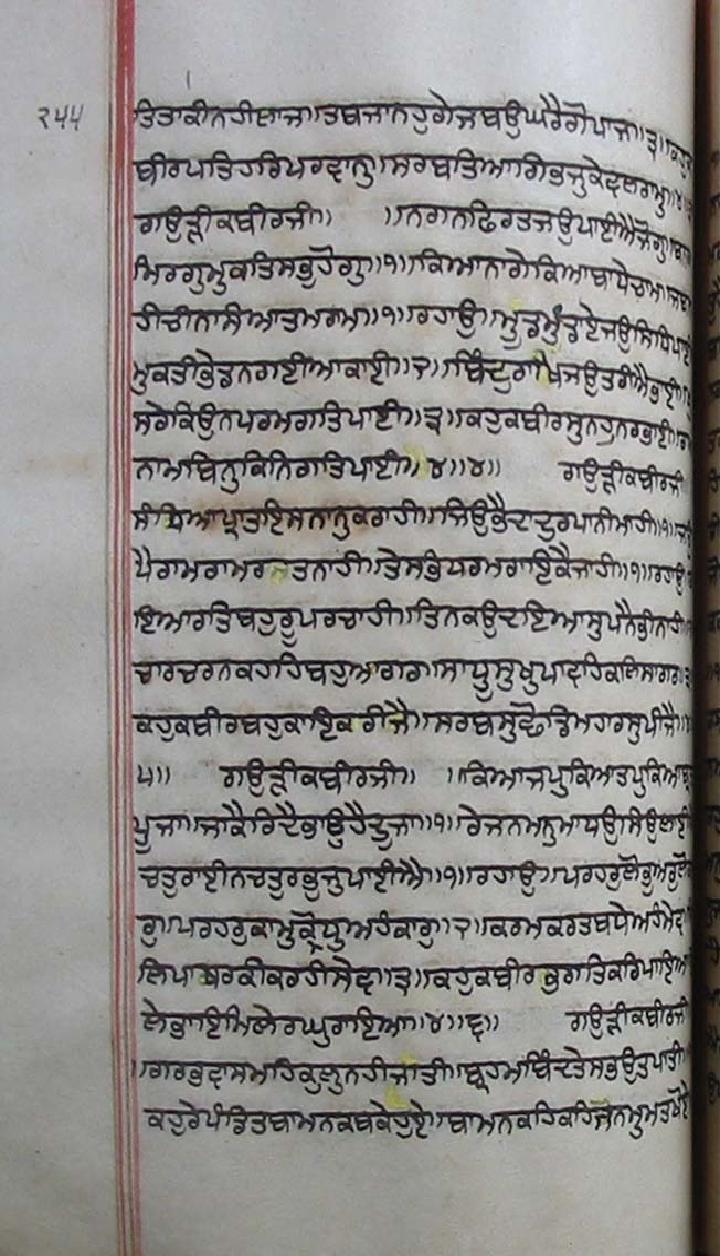 ੨੪੪
ਤਿਤਾਕੀਨਹੀਲਾਜ॥ਤਬਜਾਨਹੁਗੇਜਬਉਘਰੈਗੋਪਾਜ॥੩॥ਕਹੁਕ
ਬੀਰਪਤਿਹਰਿਪਰਵਾਨੁ॥ਸਰਬਤਿਆਗਿਭਜੁਕੇਵਲਰਾਮੁ॥੪॥੩
ਗਉੜੀਕਬੀਰਜੀ॥ ॥ਨਗਨਫਿਰਤਜਉਪਾਈਐਜੋਗੁ॥ਬਨਕਾ
ਮਿਰਗੁਮੁਕਤਿਸਭੁਹੋਗੁ॥੧॥ਕਿਆਨਾਗੇਕਿਆਬਾਧੇਚਾਮ॥ਜਬਨ
ਹੀਚੀਨਾਸਿਆਤਮਰਾਮ॥੧॥ਰਹਾਉ॥ਮੂਡਮੁੰਡਾਏਜਉਸਿਧਿਪਾਈ
ਮੁਕਤੀਭੇਡਨਗਈਆਕਾਈ॥੨॥ਬਿੰਦੁਰਾਖਿਜਉਤਰੀਐਭਾਈ॥ਖੁ
ਸਰੇਕਿਉਨਪਰਮਗਤਿਪਾਈ॥੩॥ਕਹੁਕਬੀਰਸੁਨਹੁਨਰਭਾਈ॥ਰਾਮ
ਨਾਮਬਿਨੁਕਿਨਿਗਤਿਪਾਈ॥੪॥੪॥ ਗਉੜੀਕਬੀਰਜੀ
ਸੰਧਿਆਪ੍ਰਾਤਇਸਨਾਨੁਕਰਾਹੀ॥ਜਿਉਭੈਦਾਦੁਰਪਾਨੀਮਾਹੀ॥੧॥ਜਉ
ਪੈਰਾਮਰਾਮਰਤਨਾਹੀ॥ਤੇਸਭਿਧਰਮਰਾਇਕੈਜਾਹੀ॥੧॥ਰਹਾਉ
ਇਆਰਤਿਬਹੁਰੂਪਰਚਾਹੀ॥ਤਿਨਕਉਦਇਆਸੁਪਨੈਭੀਨਾਹੀ
ਚਾਰਚਰਨਕਹਹਿਬਹੁਆਗਰ॥ਸਾਧੂਸੁਖੁਪਾਵਹਿਕਲਿਸਾਗਰ॥੩
ਕਹੁਕਬੀਰਬਹੁਕਾਇਕਰੀਜੈ॥ਸਰਬਸੁਛੋਡਿਮਹਾਰਸੁਪੀਜੈ॥੪
੫॥ ਗਉੜੀਕਬੀਰਜੀ॥ ॥ਕਿਆਜਪੁਕਿਆਤਪੁਕਿਆਬ੍ਰਤ
ਪੂਜਾ॥ਜਾਕੈਰਿਦੈਭਾਉਹੈਦੂਜਾ॥੧॥ਰੇਜਨਮਨੁਮਾਧਉਸਿਉਲਾਈ
ਚਤੁਰਾਈਨਚਤੁਰਭੁਜੁਪਾਈਐ॥੧॥ਰਹਾਉ॥ਪਰਹਰੁਲੋਭੁਅਰੁਲੋ
ਗੁ॥ਪਰਹਰੁਕਾਮੁਕ੍ਰੋਧੁਅਹੰਕਾਰੁ॥੨॥ਕਰਮਕਰਤਬਧੇਅਹੰਮੇਵ
ਲਿਪਾਥਰਕੀਕਰਹੀਸੇਵ॥੩॥ਕਹੁਕਬੀਰਭਗਤਿਕਰਿਪਾਇਆ
ਲੇਭਾਇਮਿਲੇਰਘੁਰਾਇਆ॥੪॥੬॥ ਗਉੜੀਕਬੀਰਜੀ
॥ਗਰਭਵਾਸਮਹਿਕੁਲੁਨਹੀਜਾਤੀ॥ਬ੍ਰਹਮਬਿੰਦਤੇਸਭਉਤਪਾਤੀ॥
ਕਹੁਰੇਪੰਡਿਤਬਾਮਨਕਬਕੇਹੂਏ॥ਬਾਮਨਕਹਿਕਹਿਜਨਮੁਮਤਖੋਏ